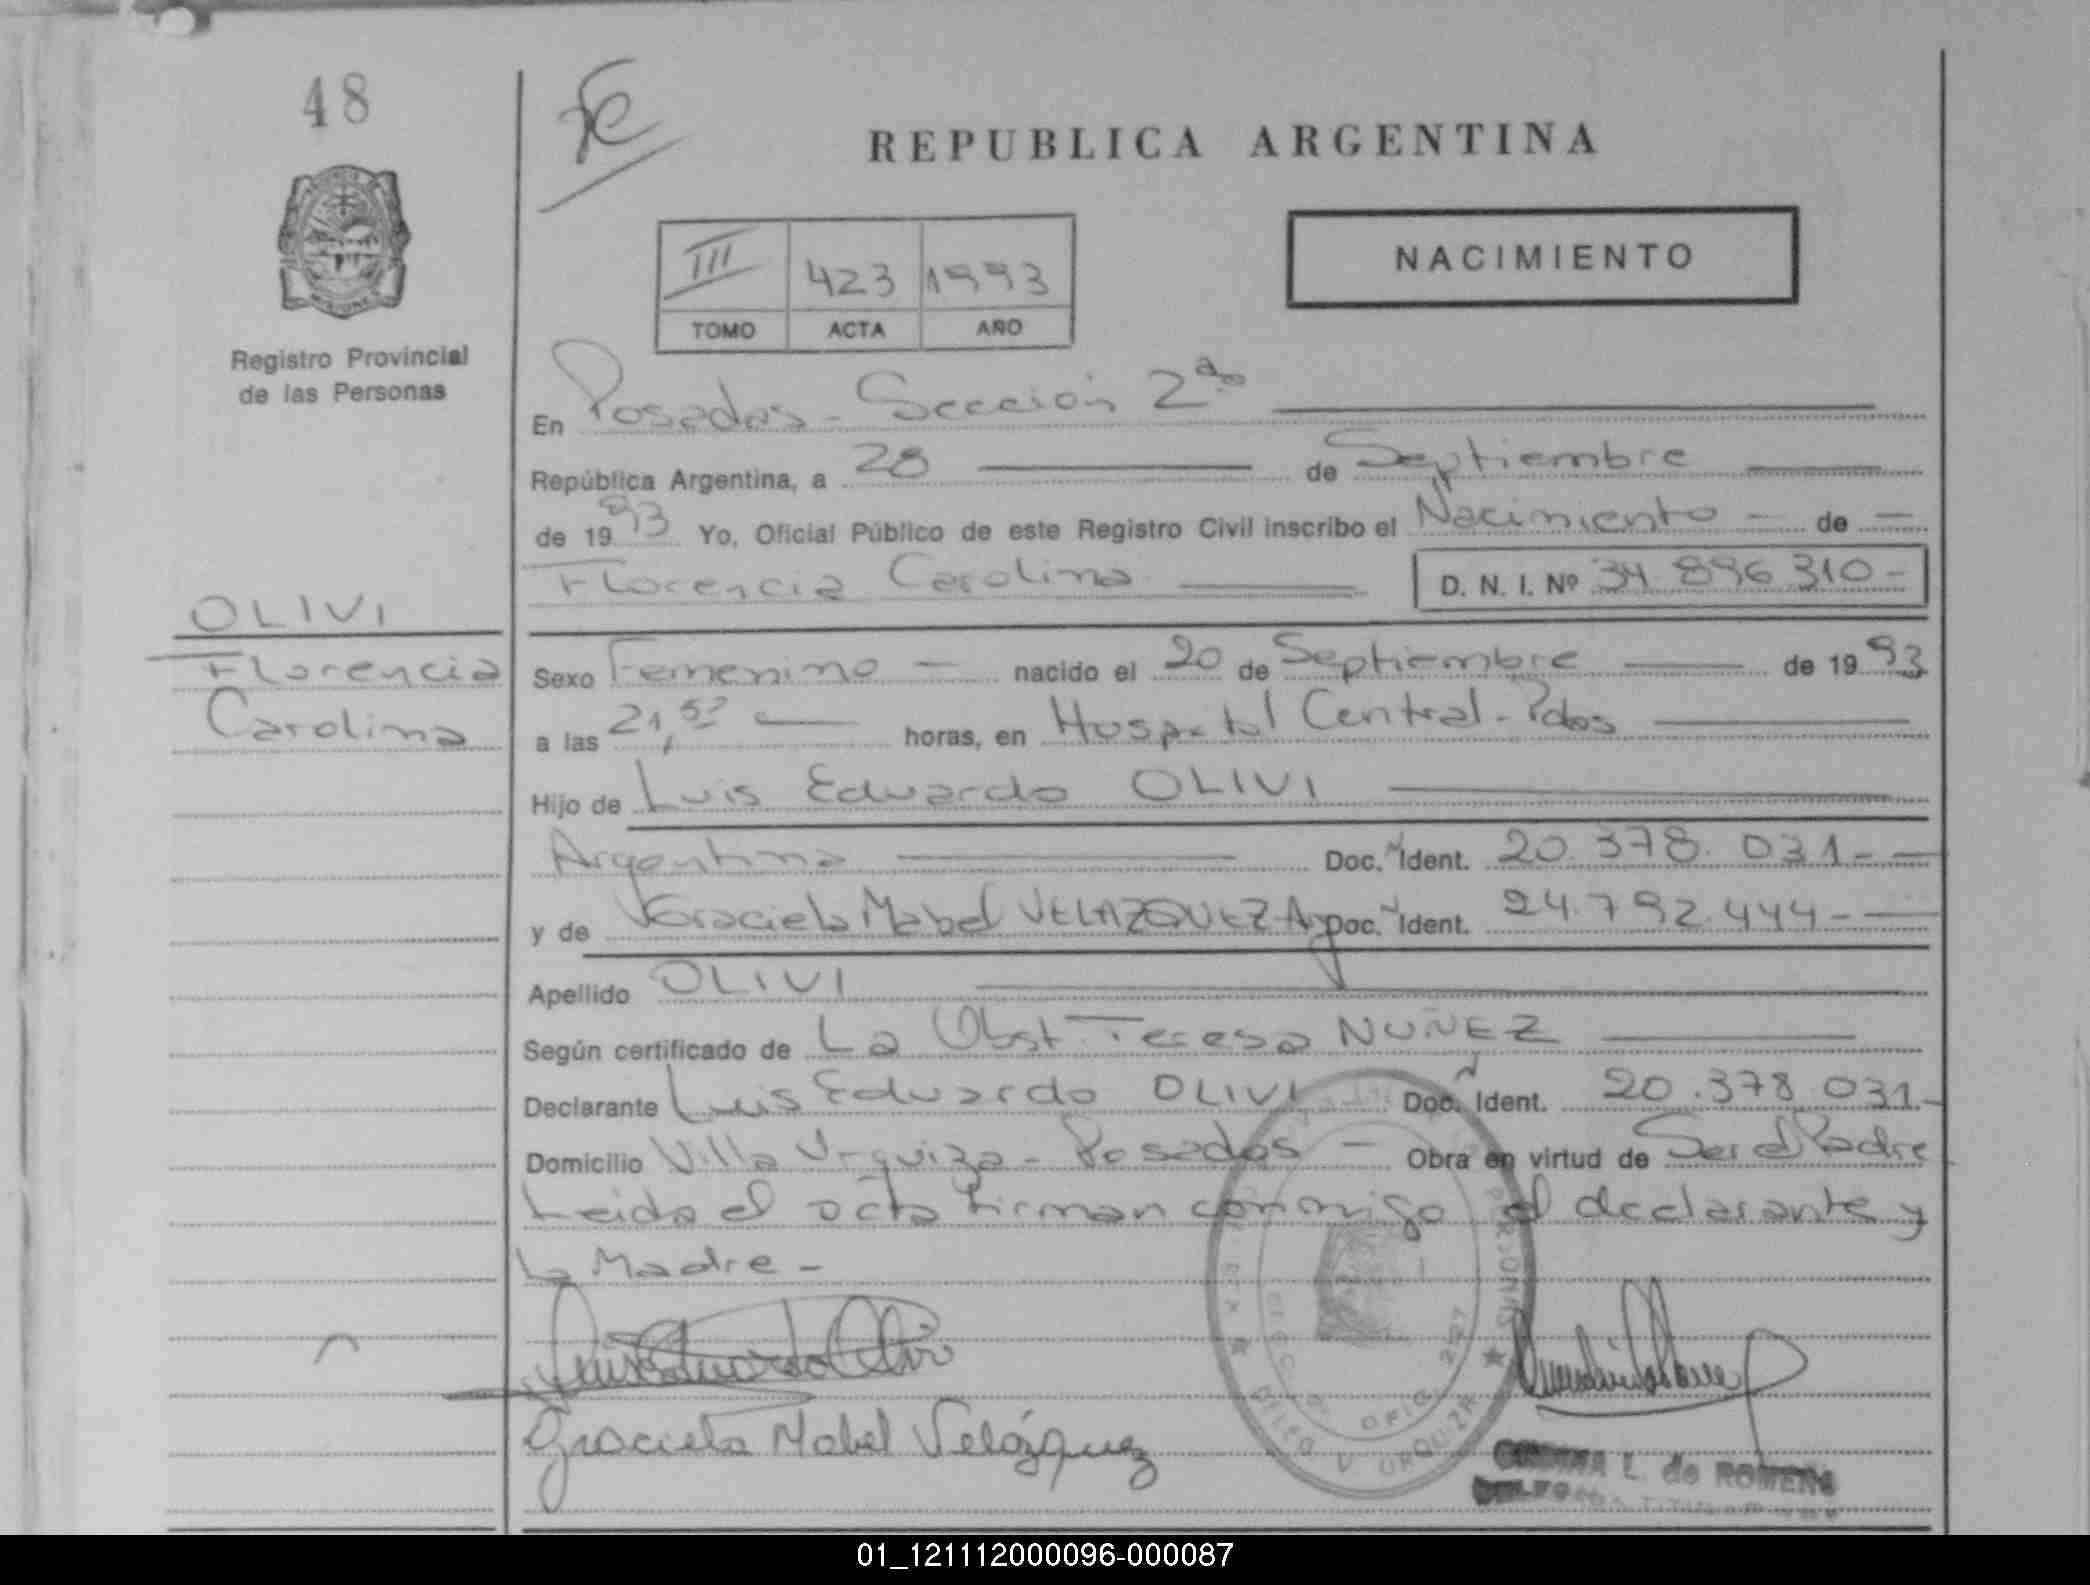 48
Fe
REPUBLICA ARGENTINA
III 423 1993
TOMO ACTA AÑO
NACIMIENTO
Registro Provincial
de las Personas
En Posadas - Sección 2da
República Argentina, a 28 de Septiembre
de 1993 Yo, Oficial Público de este Registro Civil inscribo el Nacimiento - de -
Florencia Carolina D. N. I. Nº 34.896.310-
OLIVI
Florencia
Carolina
Sexo Femenino - nacido el 20 de Septiembre de 1993
a las 21,50 horas, en Hospital Central - Pdas
Hijo de Luis Eduardo OLIVI
Argentina Doc. Ident. 20.378.031-
y de Graciela Mabel VELAZQUEZ Arg Doc. Ident. 24.792.444-
Apellido OLIVI
Según certificado de La Obst. Teresa NUÑEZ
Declarante Luis Eduardo OLIVI Doc. Ident. 20.378.031-
Domicilio Villa Urquiza - Posadas - Obra en virtud de Ser el Padre
Leida el acta firman conmigo el declarante y
La Madre -
Luis Eduardo Olivi
Graciela Mabel Velázquez
PERSONAS
OFIC. 2587
DELEG V URQUIZA
L. de ROMERO
01_121112000096-000087